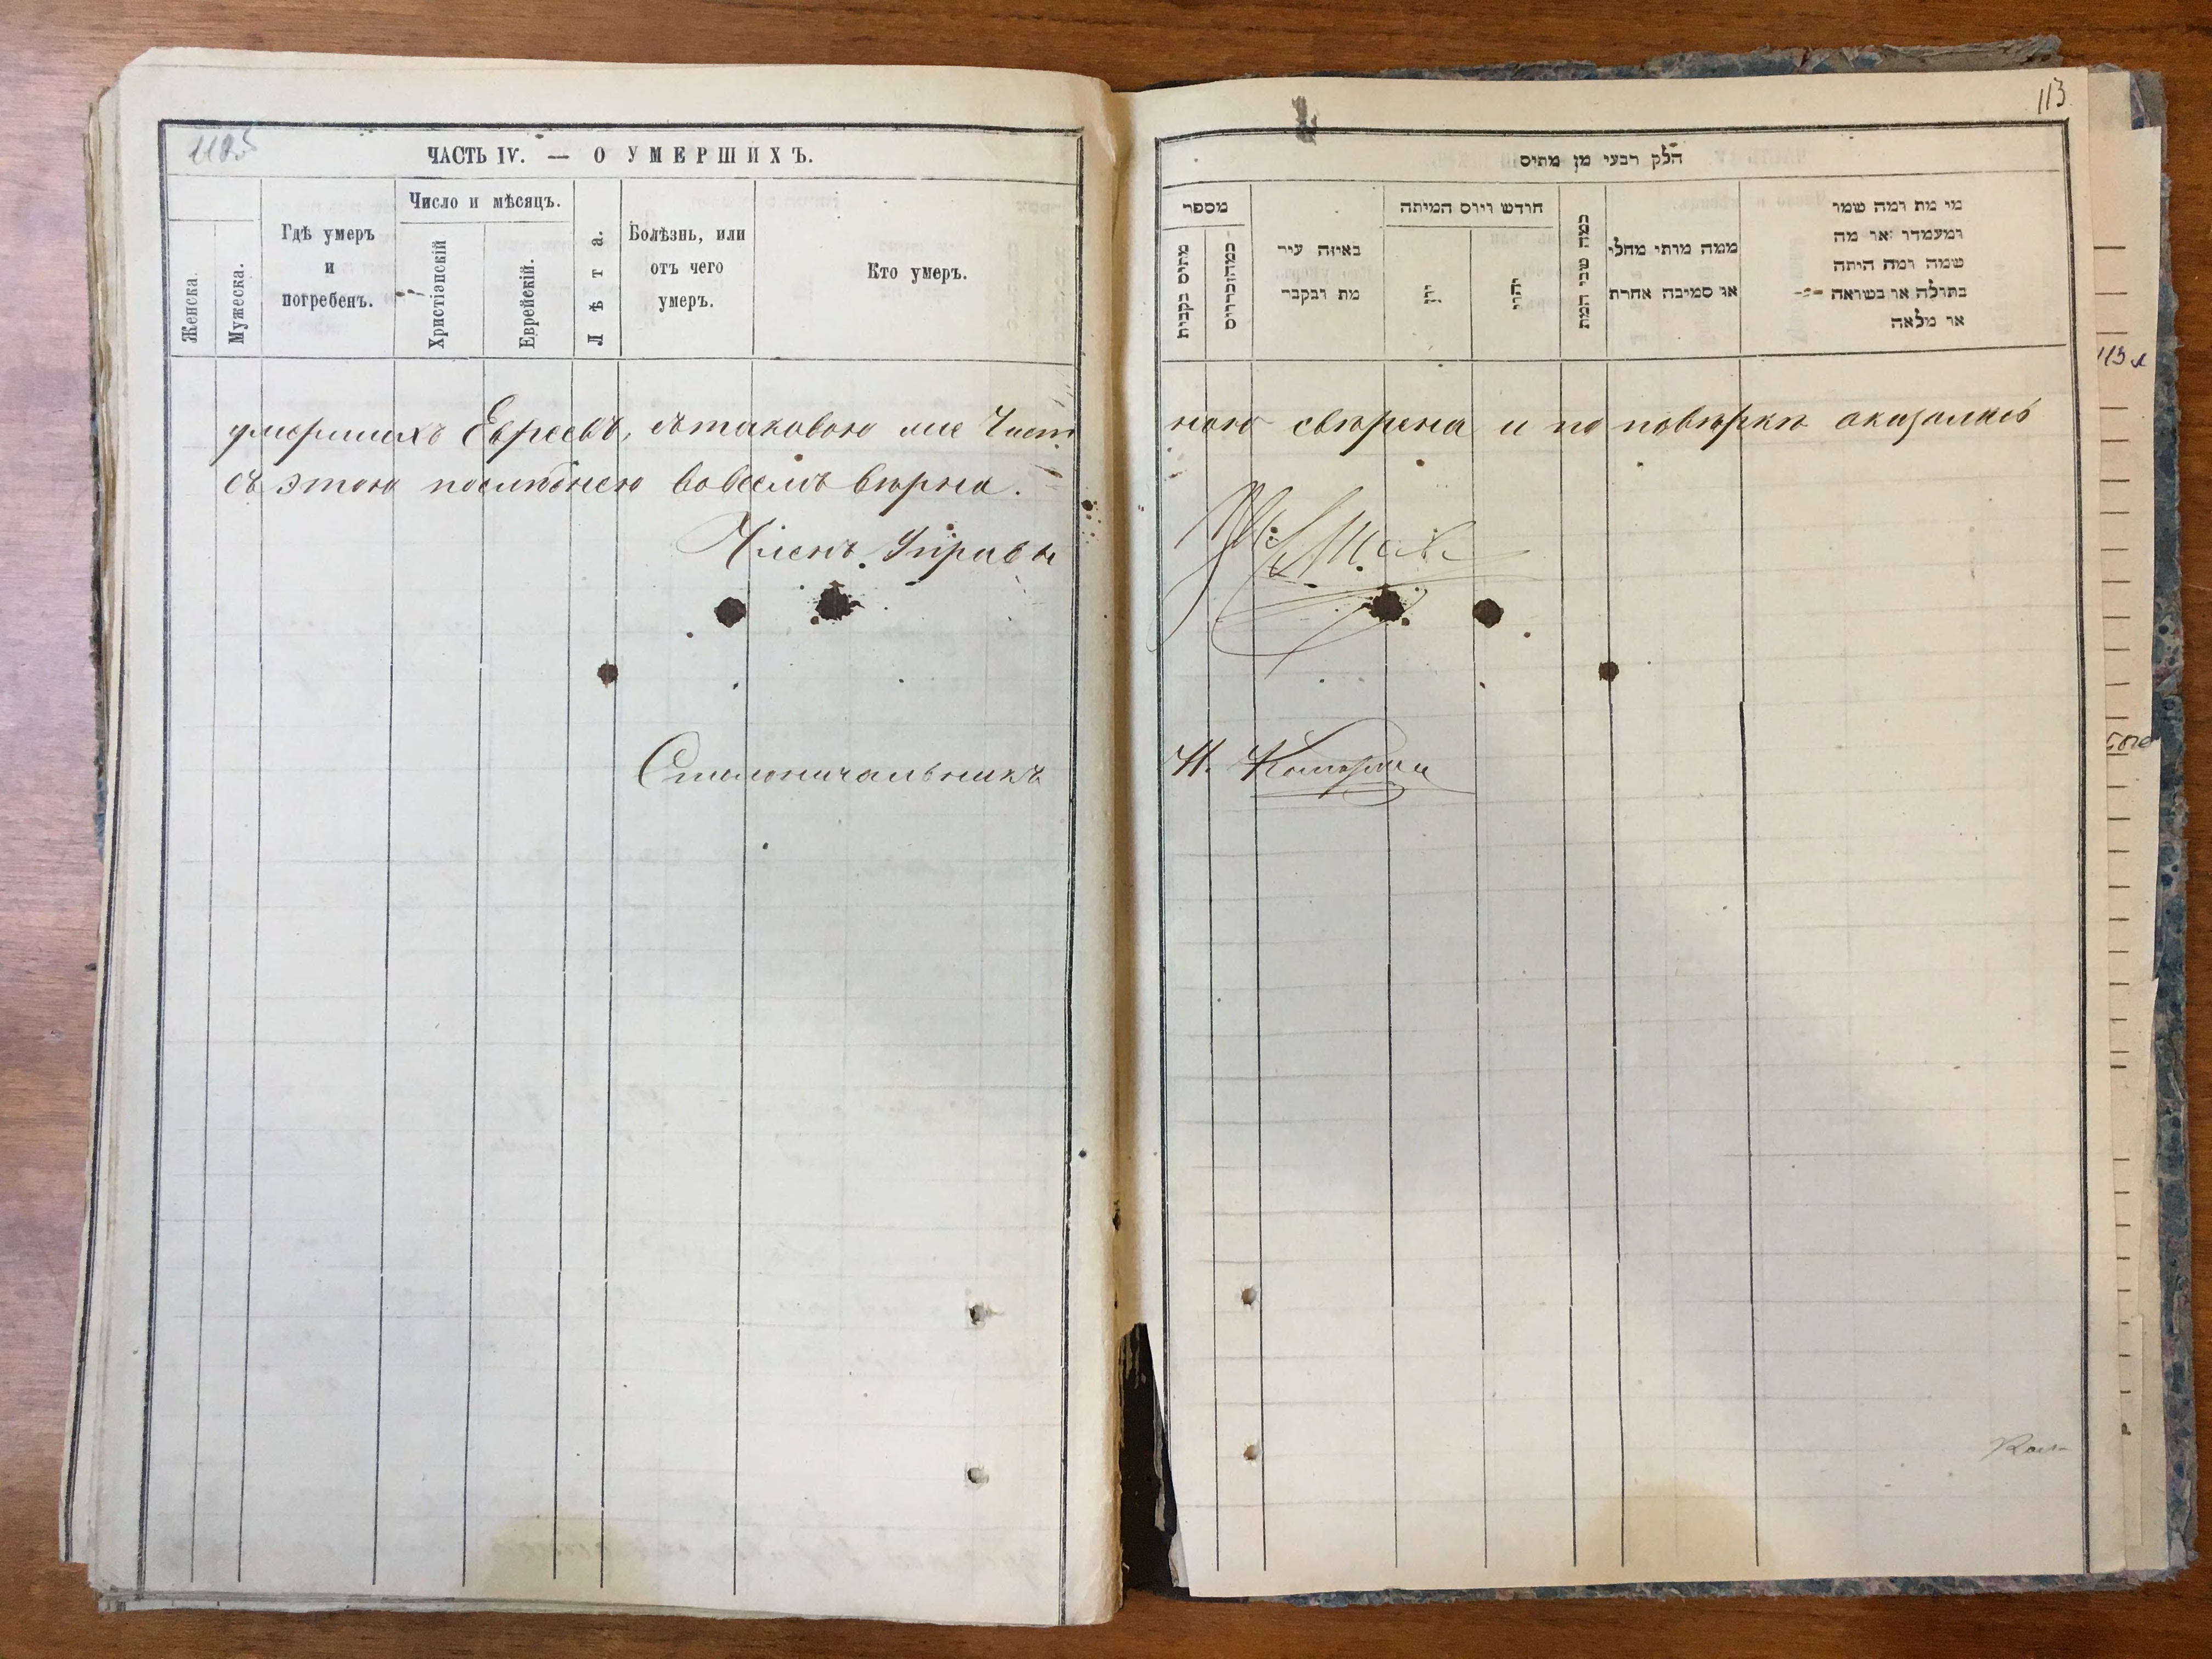 113
ЧАСТЬ IV. — О УМЕРШИХЪ.
Женска
Мужеска.
Гдѣ умеръ
и
погребенъ.
Число и мѣсяцъ.
Христіанскій
Еврейскій.
Лѣта.
Болѣзнь, или
отъ чего
умеръ.
Кто умеръ.
умершихъ Евреевъ, съ таковою же Част
съ этою послѣднею во всемъ вѣрна.
Членъ Управы
Столоначальникъ
חלק רבעי מן מתים
מספר
מתים נקבות
חודש ויום המיתה
באיזה עיר
מת ונקבר
יון
יהודי
כמה שני המת
ממה מותי מחלי
או סמיבה אחרת
מי מת ומה שמו
ומעמדו או מה
שמה ומה היתה
בתולה או נשואה
או מלאה
ною свѣрена и по повѣркѣ оказалась
Н.
113 л